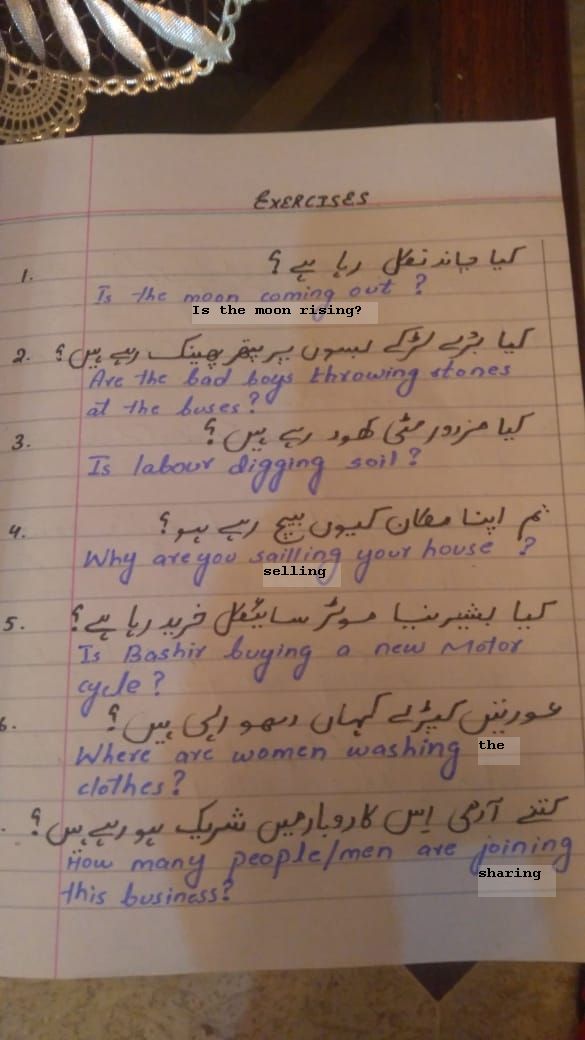 EXERCISES
1. کیا چاند نکل رہا ہے ؟
Is the moon coming out ?
Is the moon rising?
2. کیا بُرے لڑکے بسوں پر پتھر پھینک رہے ہیں ؟
Are the bad boys throwing stones
at the buses?
3. کیا مزدور مٹی کھود رہے ہیں ؟
Is labour digging soil?
4. تم اپنا مکان کیوں بیچ رہے ہو ؟
Why are you sailling your house ?
selling
5. کیا بشیر نیا موٹر سائیکل خرید رہا ہے ؟
Is Bashir buying a new Motor
cycle?
6. عورتیں کپڑے کہاں دھو رہی ہیں ؟
Where are women washing the
clothes?
کتنے آدمی اِس کاروبار میں شریک ہو رہے ہیں ؟
How many people/men are joining
sharing
this business?